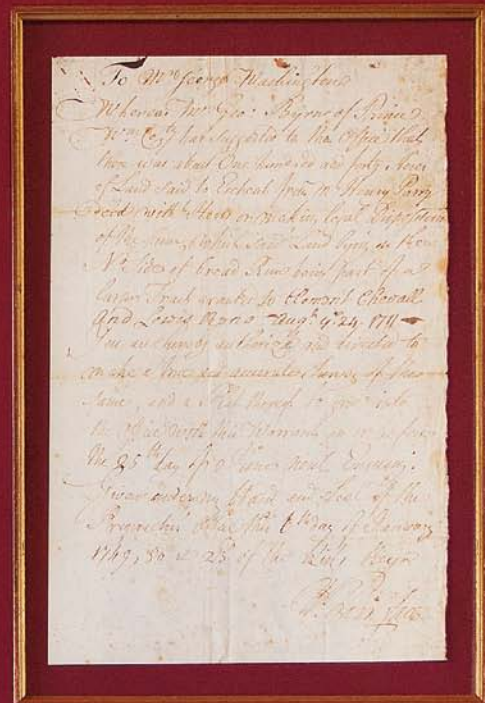 To Mr George Washington
Whereas Mr Geo: Byrne of Prince
Wm Coty has suggested to this Office that
there was about One hundred and forty Acres
of Land said to Escheat from Mr Henry Parry
Deced without Heirs or making legal Disposition
of the same which said Land lying on the
No. Side of Broad Run being part of a
larger Tract granted to Clement Chevall
And Lewis Reno Augt ye 24. 1711
You are hereby authorized and directed to
make a true and accurate Survey of the
same, and a Plat thereof to give into
the Office with this Warrant on or before
the 25th day of June next Ensuing.
Given under my Hand and Seal of the
Proprietors Office this 6th day of January
1749/50 23d of the Kings Reign